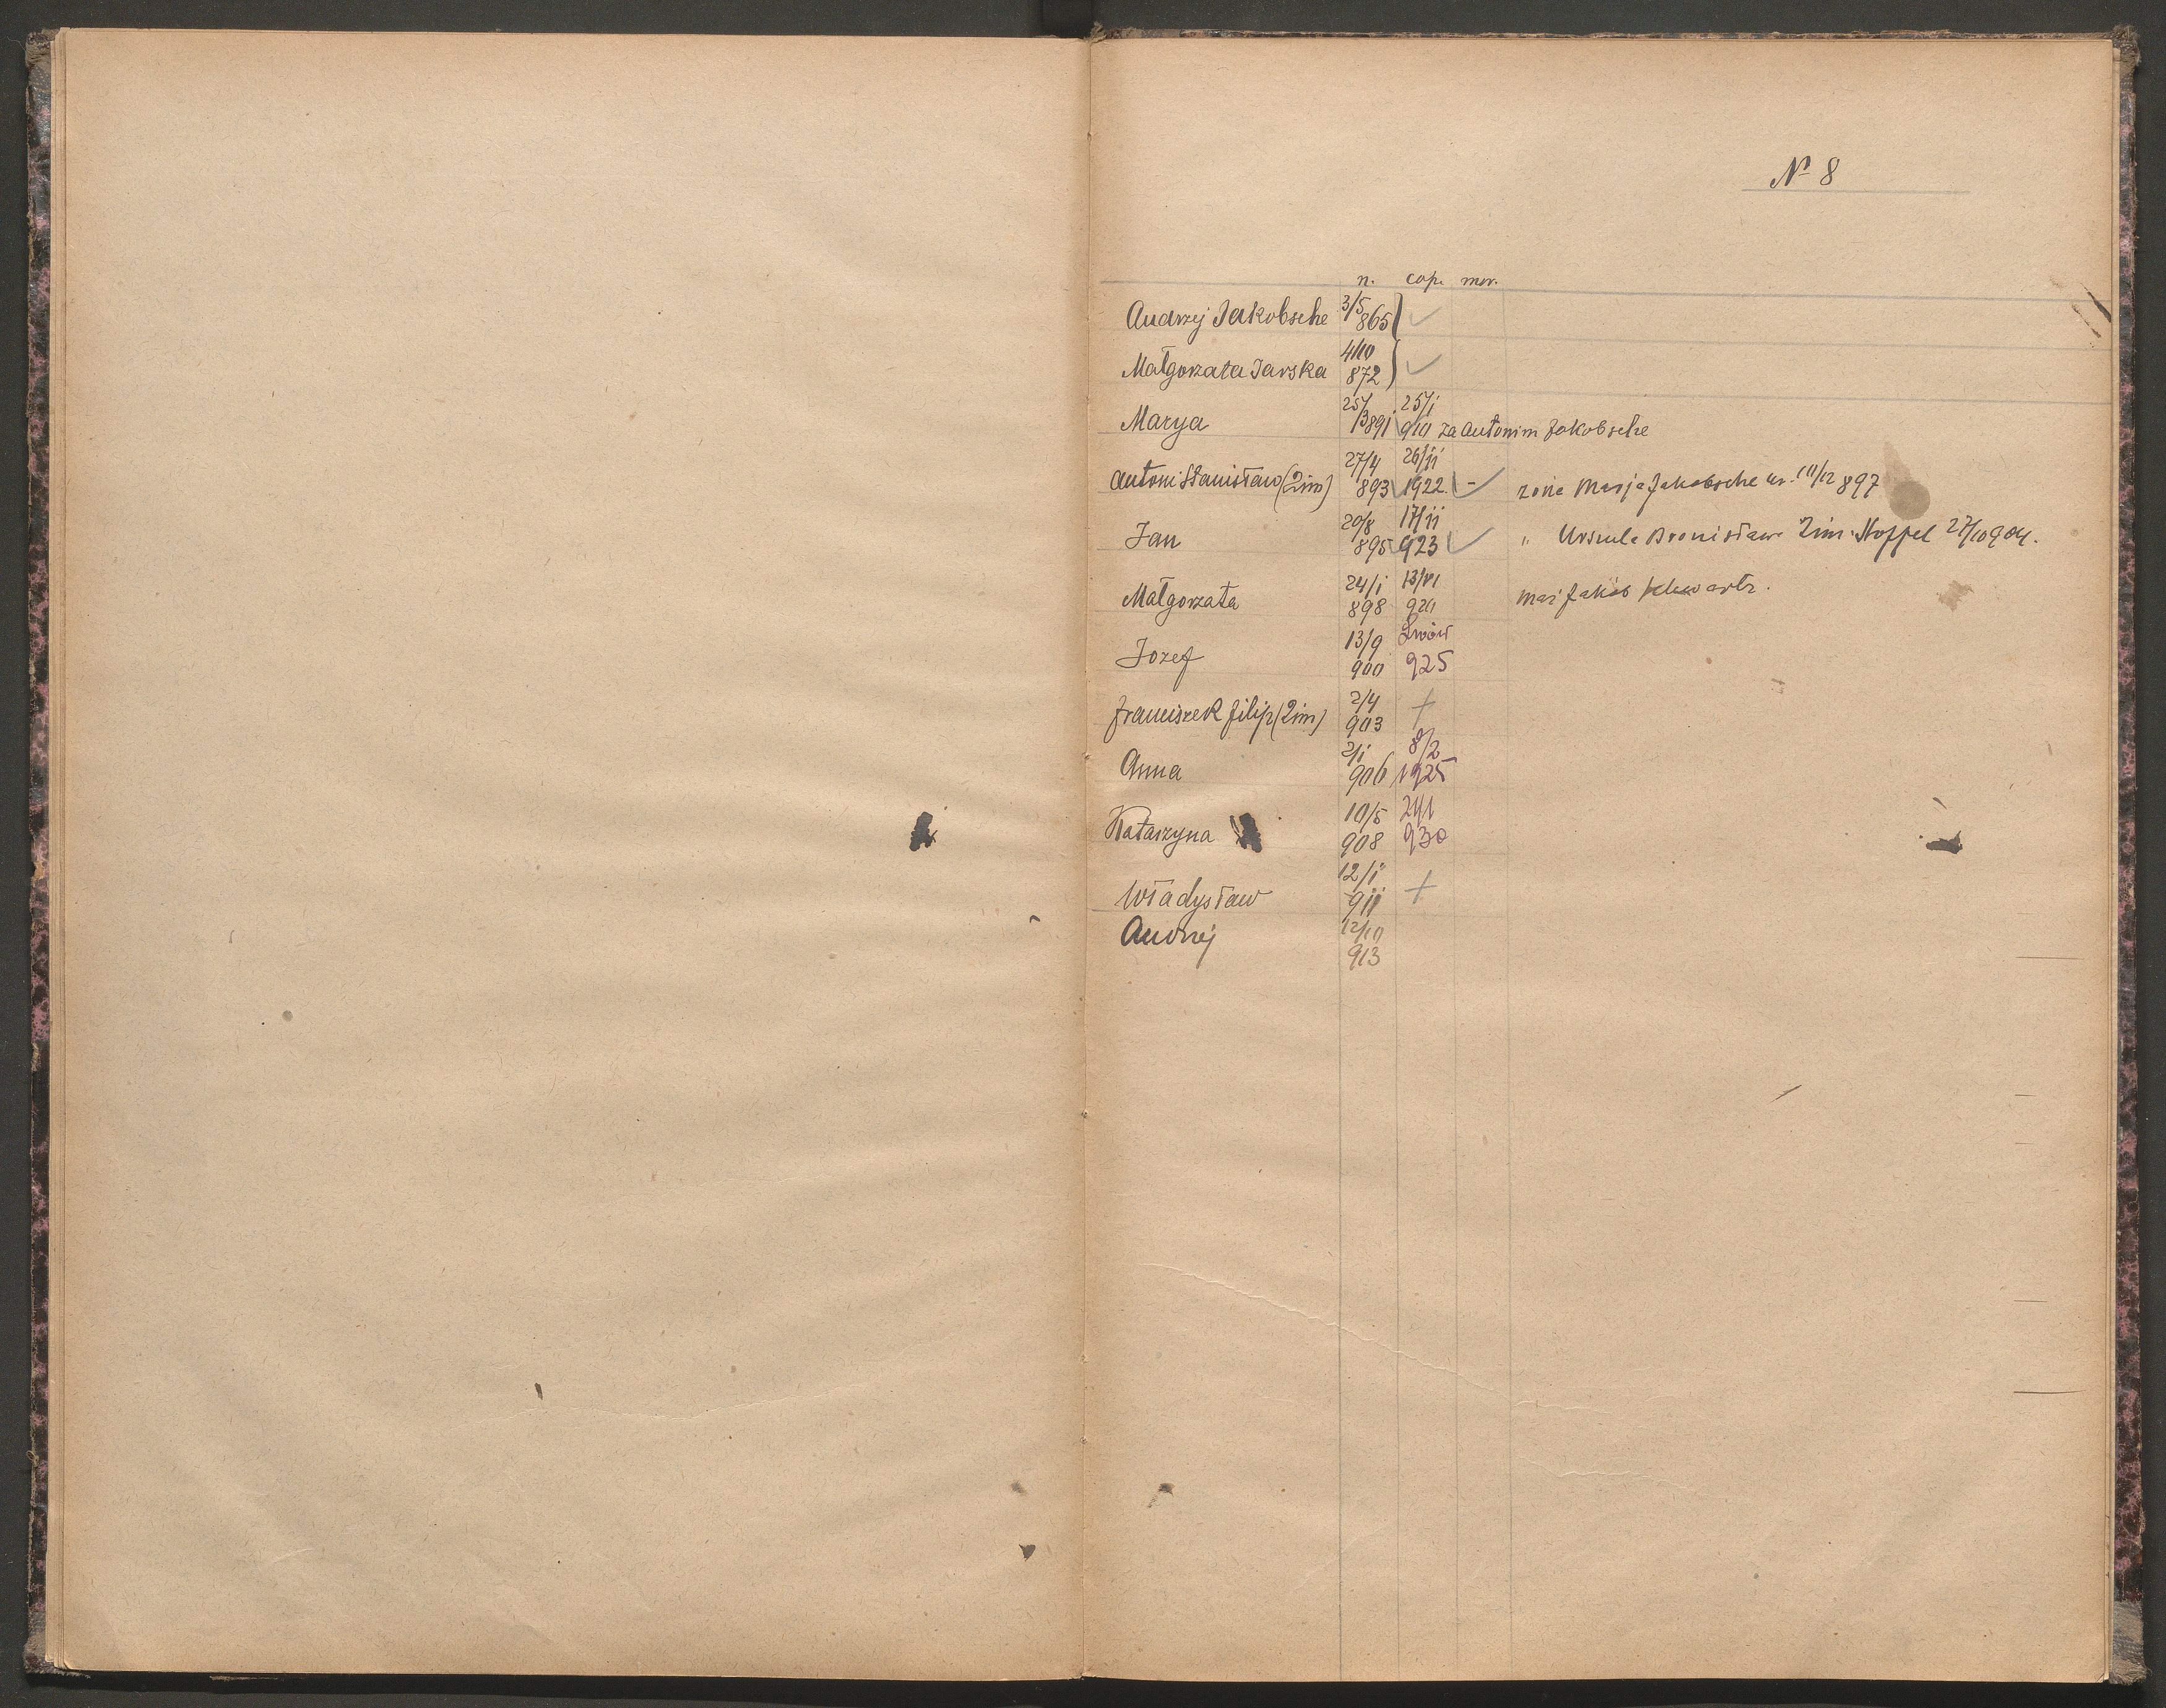 № 8
n. cop. mor.
Andrzej Jakobsche 3/5 865
Małgorzata Jarska 4/10 872
Marya 25/3 891 25/i 910 za Antonim Jakobsche
Antoni Stanisław (2im) 27/4 893 26/ii 1922 - żona Marja Jakobsche ur. 11/12 897
Jan 20/8 895 17/ii 923 " Urszula Bronisława 2im Hoppel 27/10 904.
Małgorzata 24/i 898 13/VI 920 mąż Jakób Schwartz.
Jozef 13/9 900 Lwów 925
Franciszek Filip (2im) 2/4 903 +
Anna 2/i 906 8/2 1925
Katarzyna 10/5 908 24/1 930
Władysław 12/i 911 +
Andrzej 12/10 913